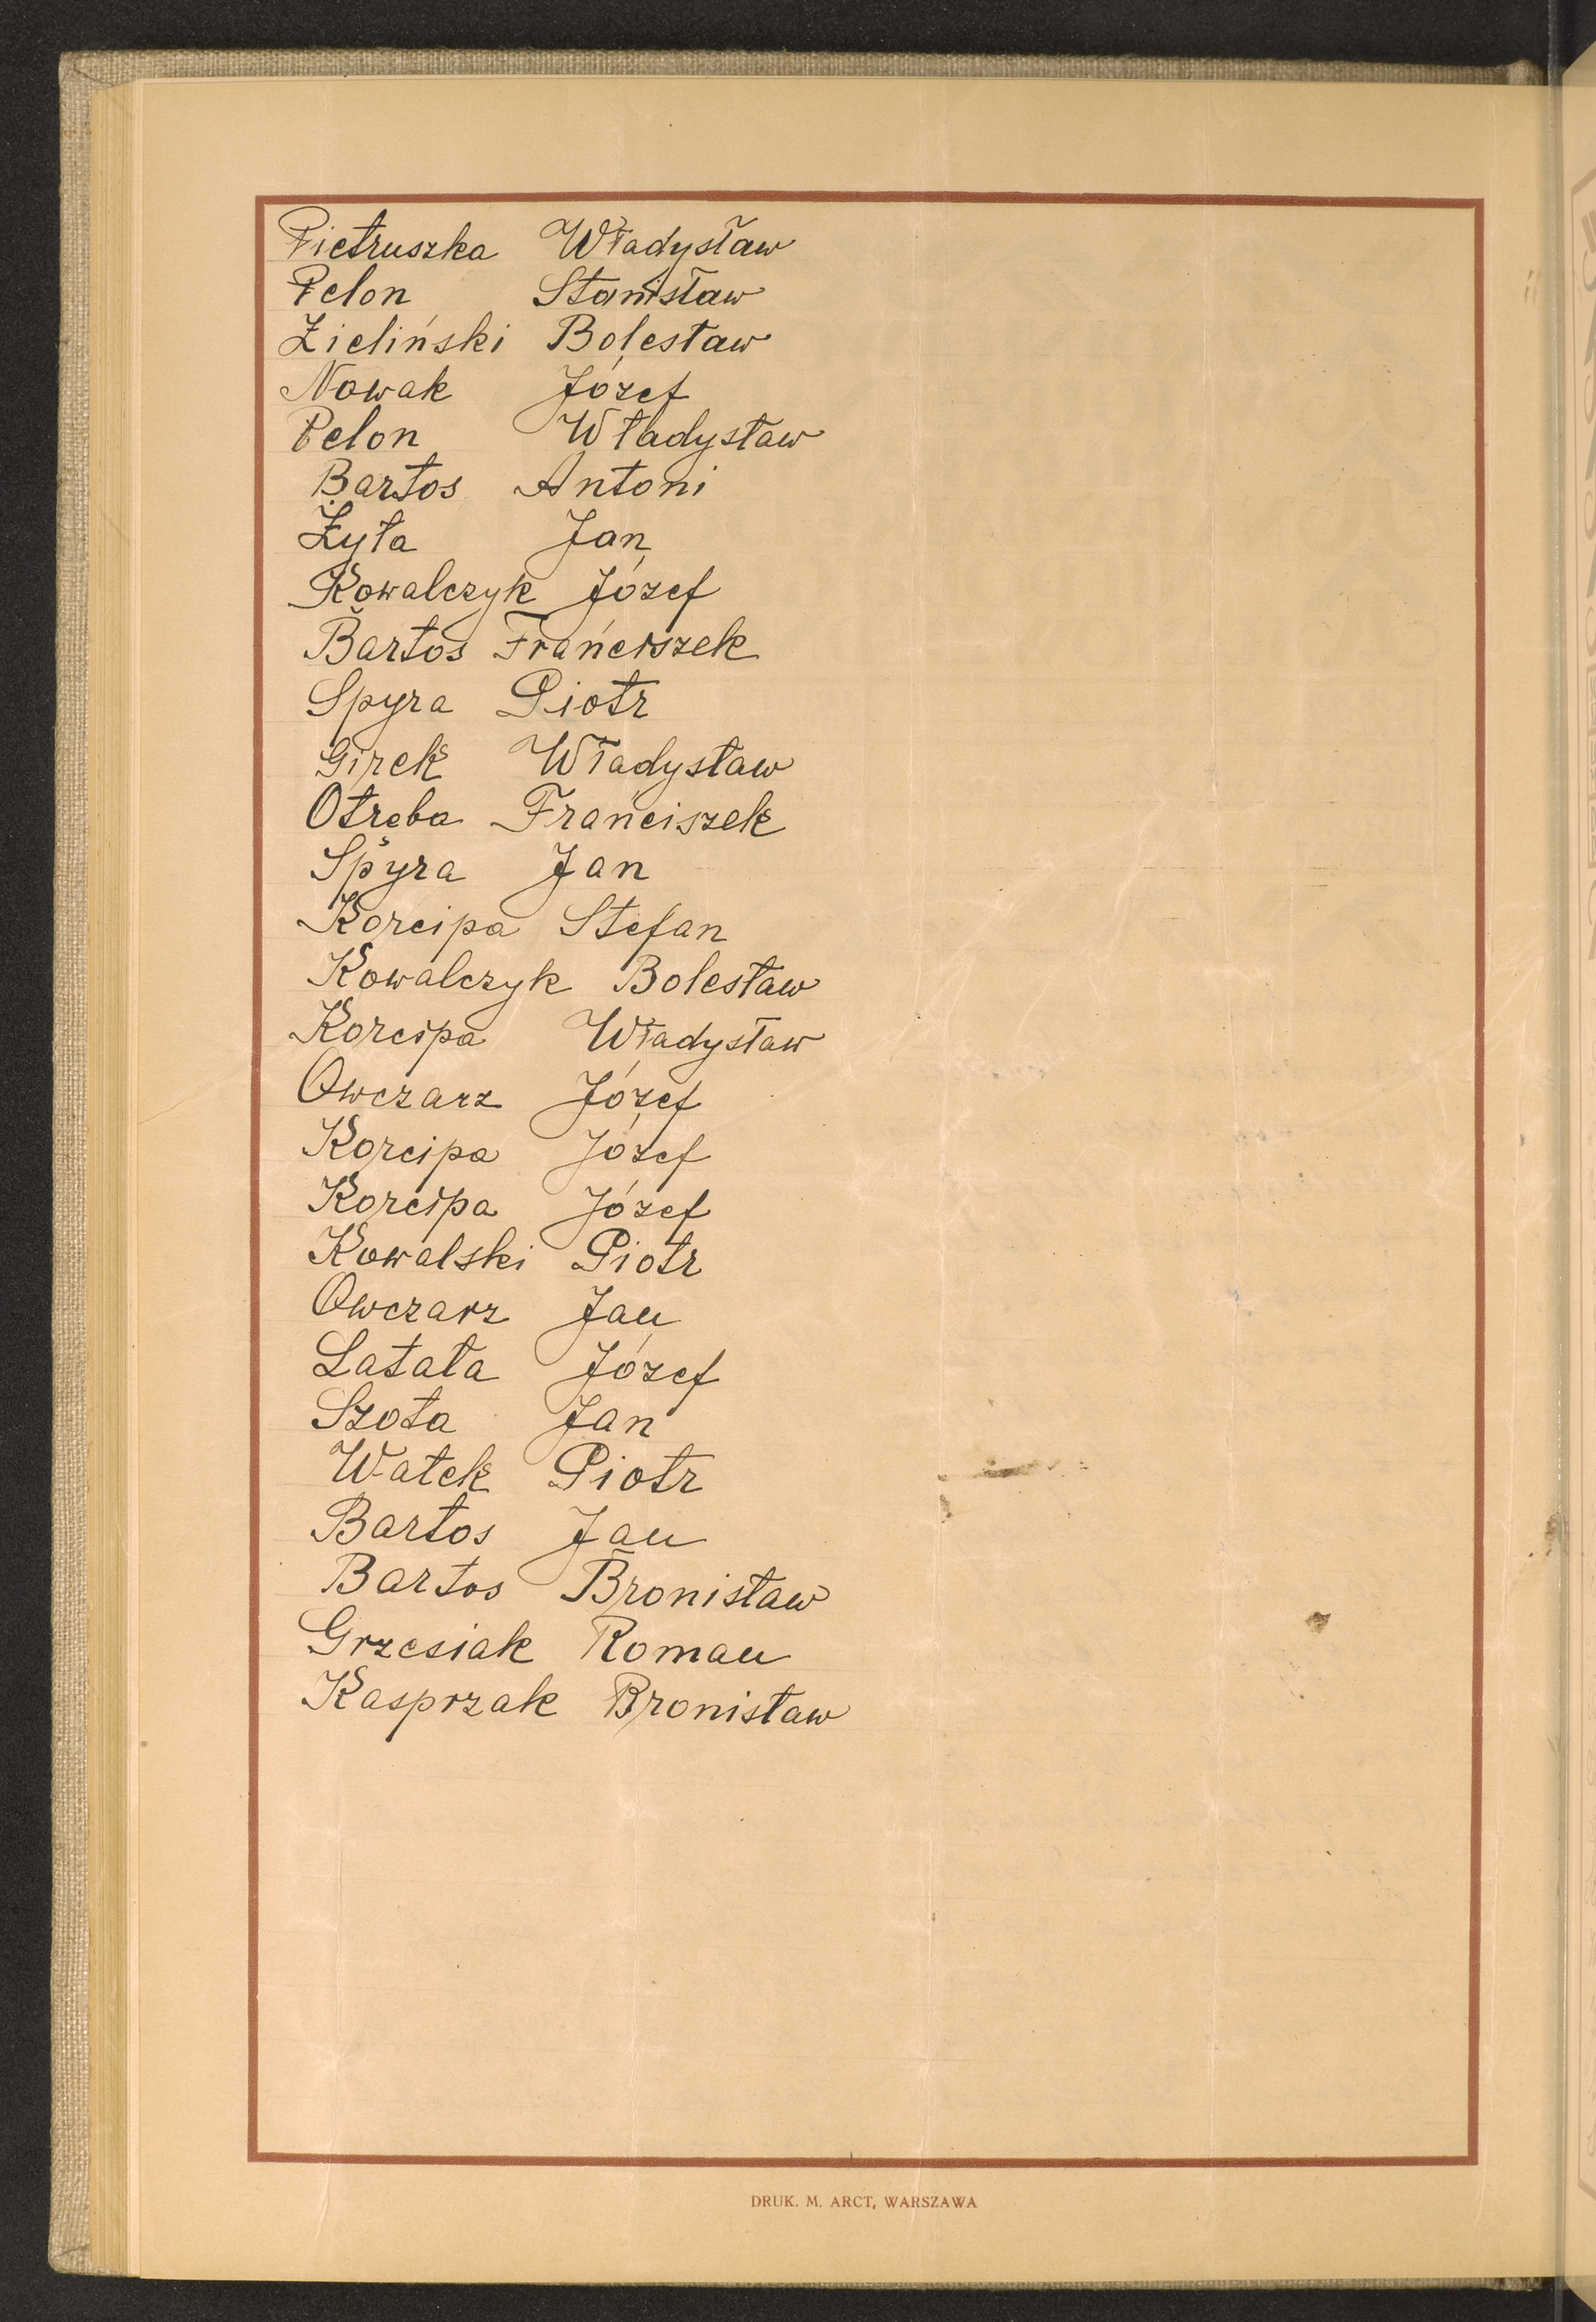 Pietruszka Władysław
Pelon Stanisław
Zieliński Bolesław
Nowak Józef
Pelon Władysław
Bartos Antoni
Żyła Jan
Kowalczyk Józef
Bartos Franciszek
Spyra Piotr
Girek Władysław
Otręba Franciszek
Spyra Jan
Korcipa Stefan
Kowalczyk Bolesław
Korcipa Władysław
Owczarz Józef
Korcipa Józef
Korcipa Józef
Kowalski Piotr
Owczarz Jan
Latała Józef
Szota Jan
Wałek Piotr
Bartos Jan
Bartos Bronisław
Grzesiak Roman
Kasprzak Bronisław
DRUK. M. ARCT, WARSZAWA